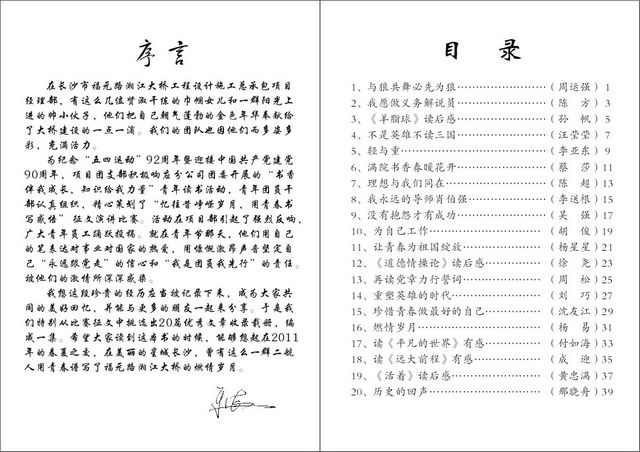 序言
在长沙市福元路湘江大桥工程设计施工总承包项目
经理部，有这么几位贤淑干练的巾帼女儿和一群阳光上
进的帅小伙子，他们把自己朝气蓬勃的金色年华奉献给
了大桥建设的一点一滴。我们的团队也因他们而多姿多
彩，充满活力。
为纪念“五四运动”92周年暨迎接中国共产党建党
90周年，项目团支部积极响应分公司团委开展的“书香
伴我成长，知识给我力量”青年读书活动，青年团员干
部认真组织，精心策划了“忆往昔峥嵘岁月，用青春书
写感悟”征文演讲比赛。活动在项目部引起了强烈反响，
广大青年员工踊跃投稿。就在青年节那天，他们用自己
的笔表达对事业对国家的热爱，用慷慨激昂声音坚定自
己“永远跟党走”的信心和“我是团员我先行”的责任。
被他们的激情所深深感染。
我想这段珍贵的经历应当被记录下来，成为大家共
同的美好回忆，并能与更多的朋友一起来分享。于是我
们特别从比赛征文中挑选出20篇优秀文章收录载册，编
成一集。希望大家读到这本书的时候，能够想起在2011
年的春夏之交，在美丽的星城长沙，曾有这么一群二航
人用青春谱写了福元路湘江大桥的燃情岁月。
目录
1、与狼共舞必先为狼……………………（周运强）1
2、我愿做义务解说员……………………（陈 方）3
3、《羊脂球》读后感……………………（孙 帆）5
4、不是英雄不读三国……………………（汪莹莹）7
5、轻与重…………………………………（李亚东）9
6、满院书香春暖花开……………………（蔡 莎）11
7、理想与我们同在………………………（陈 超）13
8、我永远的导师肖伯强…………………（李送根）15
9、没有抱怨才有成功……………………（吴 强）17
10、为自己工作……………………………（胡 俊）19
11、让青春为祖国绽放……………………（杨星星）21
12、《道德情操论》读后感………………（徐 尧）23
13、再读党章力行誓词……………………（周 松）25
14、重塑英雄的时代………………………（刘 巧）27
15、珍惜青春做最好的自己………………（沈友江）29
16、燃情岁月………………………………（杨 易）31
17、读《平凡的世界》有感………………（付如海）33
18、读《远大前程》有感…………………（成 迎）35
19、《活着》读后感………………………（黄忠满）37
20、历史的回声……………………………（那晓舟）39